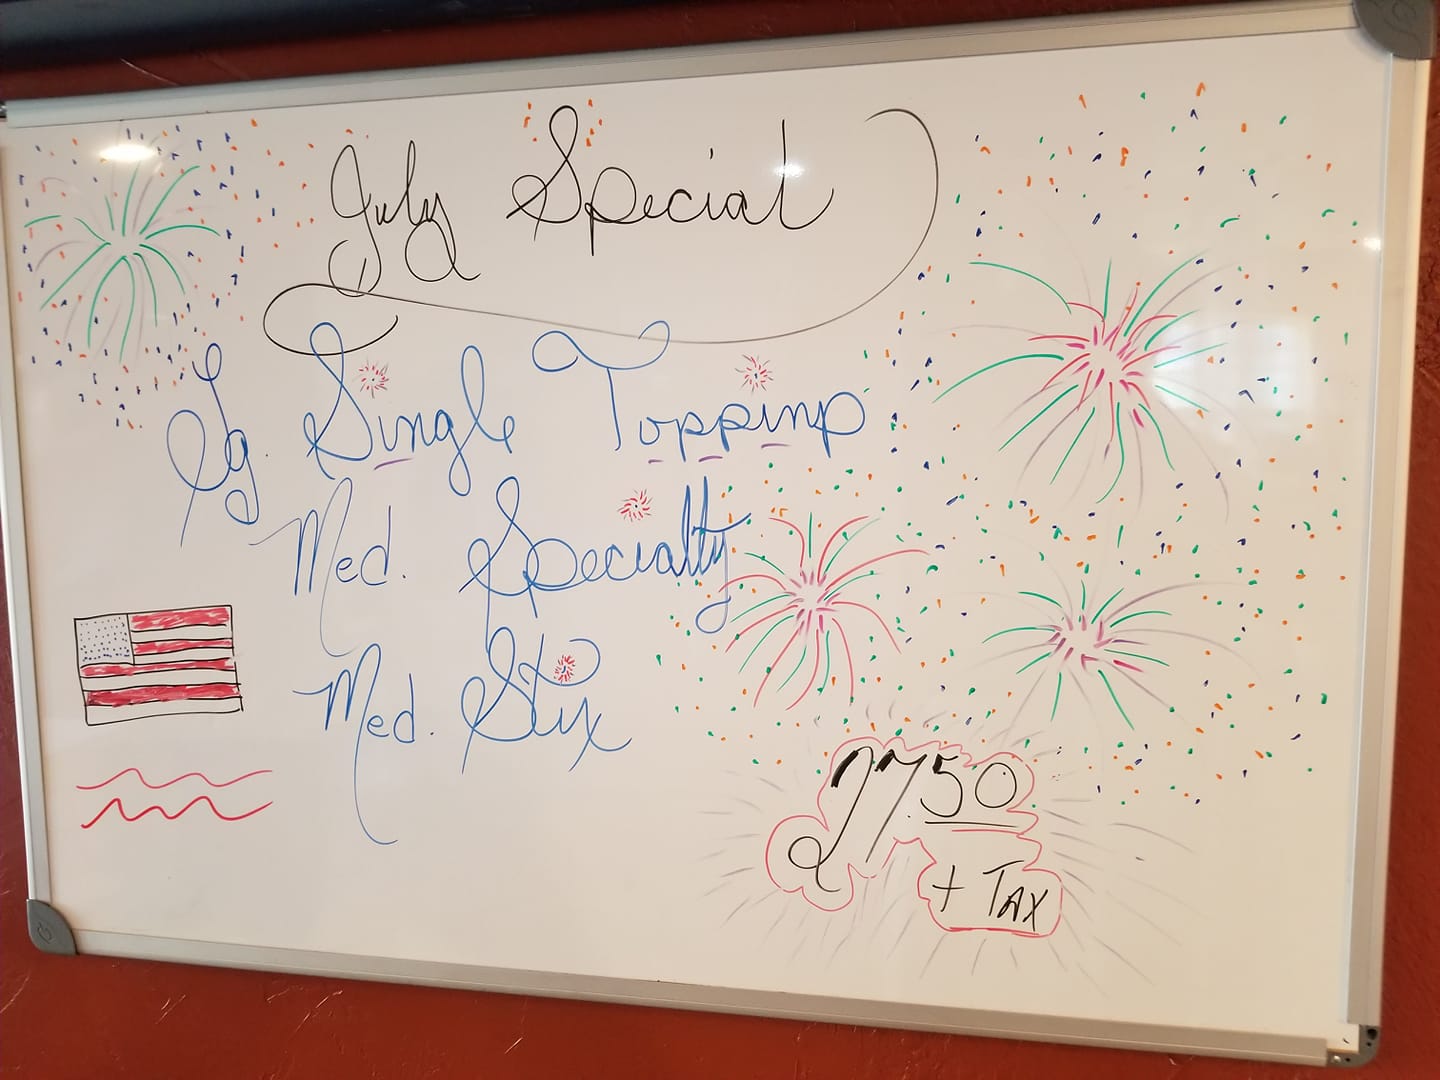 July Special
Lg. Single Topping
Med. Specialty
Med. Stix
27.50
+ TAX